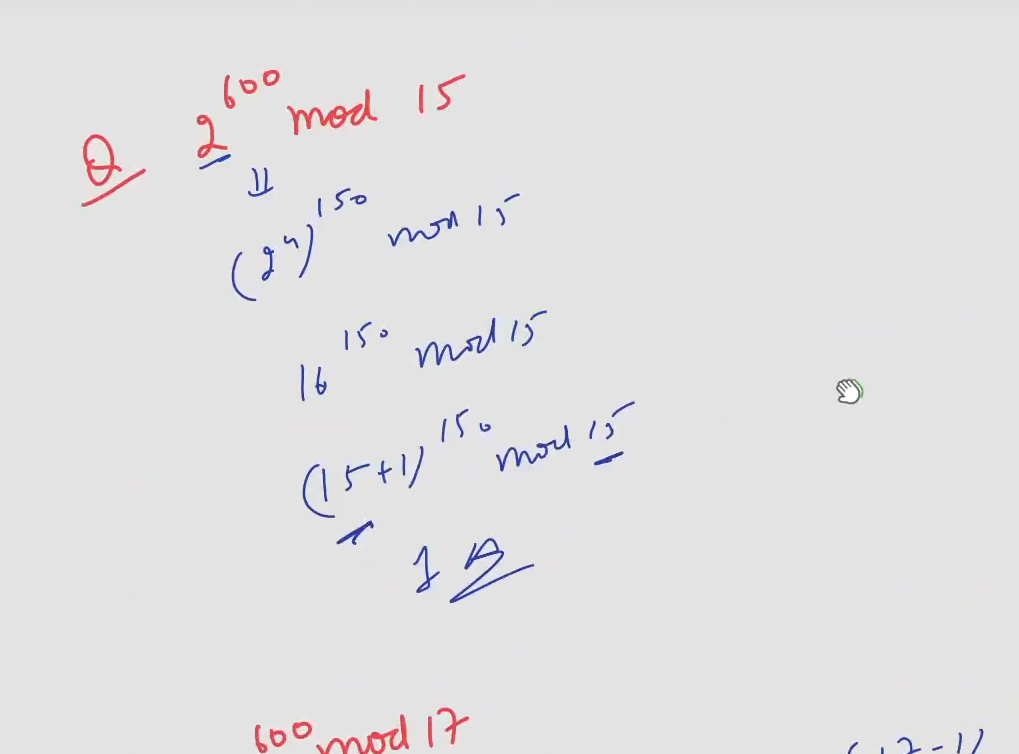 Q 2^600 mod 15
(2^4)^150 mod 15
16^150 mod 15
(15+1)^150 mod 15
1 A
600 mod 17
(17-1)